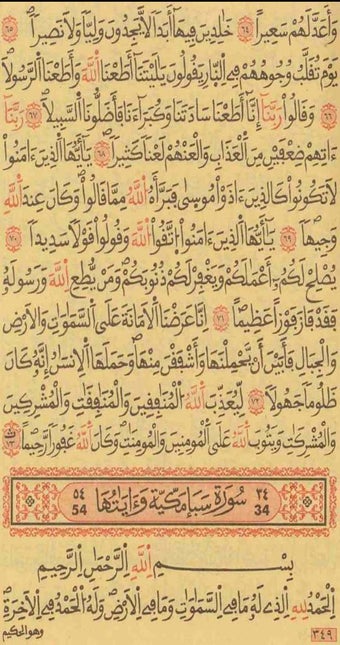 وَأَعَدَّ لَهُمْ سَعِيراً ٦٤ خَٰلِدِينَ فِيهَا أَبَداً لَّا يَجِدُونَ وَلِيّاً وَلَا نَصِيراً ٦٥
يَوْمَ تُقَلَّبُ وُجُوهُهُمْ فِي اِ۬لنّ۪ارِ يَقُولُونَ يَٰلَيْتَنَا أَطَعْنَا اَ۬للَّهَ وَأَطَعْنَا اَ۬لرَّسُولَا
٦٦ وَقَالُواْ رَبَّنَا إِنَّا أَطَعْنَا سَادَتَنَا وَكُبَرَآءَنَا فَأَضَلُّونَا اَ۬لسَّبِيلَا ٦٧ رَبَّنَا
ءَاتِهِمْ ضِعْفَيْنِ مِنَ اَ۬لْعَذَابِ وَالْعَنْهُمْ لَعْناً كَثِيراً ٦٨ يَٰٓأَيُّهَا اَ۬لذِينَ ءَامَنُواْ
لَا تَكُونُواْ كَالذِينَ ءَاذَوْاْ مُوس۪يٰ فَبَرَّأَهُ اُ۬للَّهُ مِمَّا قَالُواْ وَكَانَ عِندَ اَ۬للَّهِ
وَجِيهاً ٦٩ يَٰٓأَيُّهَا اَ۬لذِينَ ءَامَنُواْ اُ۪تَّقُواْ اُ۬للَّهَ وَقُولُواْ قَوْلاً سَدِيداً ٧٠
يُصْلِحْ لَكُمْ أَعْمَٰلَكُمْ وَيَغْفِرْ لَكُمْ ذُنُوبَكُمْ وَمَنْ يُّطِعِ اِ۬للَّهَ وَرَسُولَهُۥ
فَقَدْ فَازَ فَوْزاً عَظِيماً ٧١ اِنَّا عَرَضْنَا اَ۬لْأَمَانَةَ عَلَى اَ۬لسَّمَٰوَٰتِ وَالْأَرْضِ
وَالْجِبَالِ فَأَبَيْنَ أَنْ يَّحْمِلْنَهَا وَأَشْفَقْنَ مِنْهَا وَحَمَلَهَا اَ۬لْإِنسَٰنُ إِنَّهُۥ كَانَ
ظَلُوماً جَهُولاً ٧٢ لِّيُعَذِّبَ اَ۬للَّهُ اُ۬لْمُنَٰفِقِينَ وَالْمُنَٰفِقَٰتِ وَالْمُشْرِكِينَ
وَالْمُشْرِكَٰتِ وَيَتُوبَ اَ۬للَّهُ عَلَى اَ۬لْمُومِنِينَ وَالْمُومِنَٰتِ وَكَانَ اَ۬للَّهُ غَفُوراً رَّحِيماً ٧٣
٣٤ 34 سُورَةُ سَبَإٍ مَكِّيَّة وَءَايَاتُهَا ٥٤ 54
بِسْمِ اِ۬للَّهِ اِ۬لرَّحْمَٰنِ اِ۬لرَّحِيمِ
اِ۬لْحَمْدُ لِلهِ اِ۬لذِي لَهُۥ مَا فِي اِ۬لسَّمَٰوَٰتِ وَمَا فِي اِ۬لْأَرْضِ وَلَهُ اُ۬لْحَمْدُ فِي اِ۬لْأَخِرَةِ
وهو الحكيم ٣٤٩